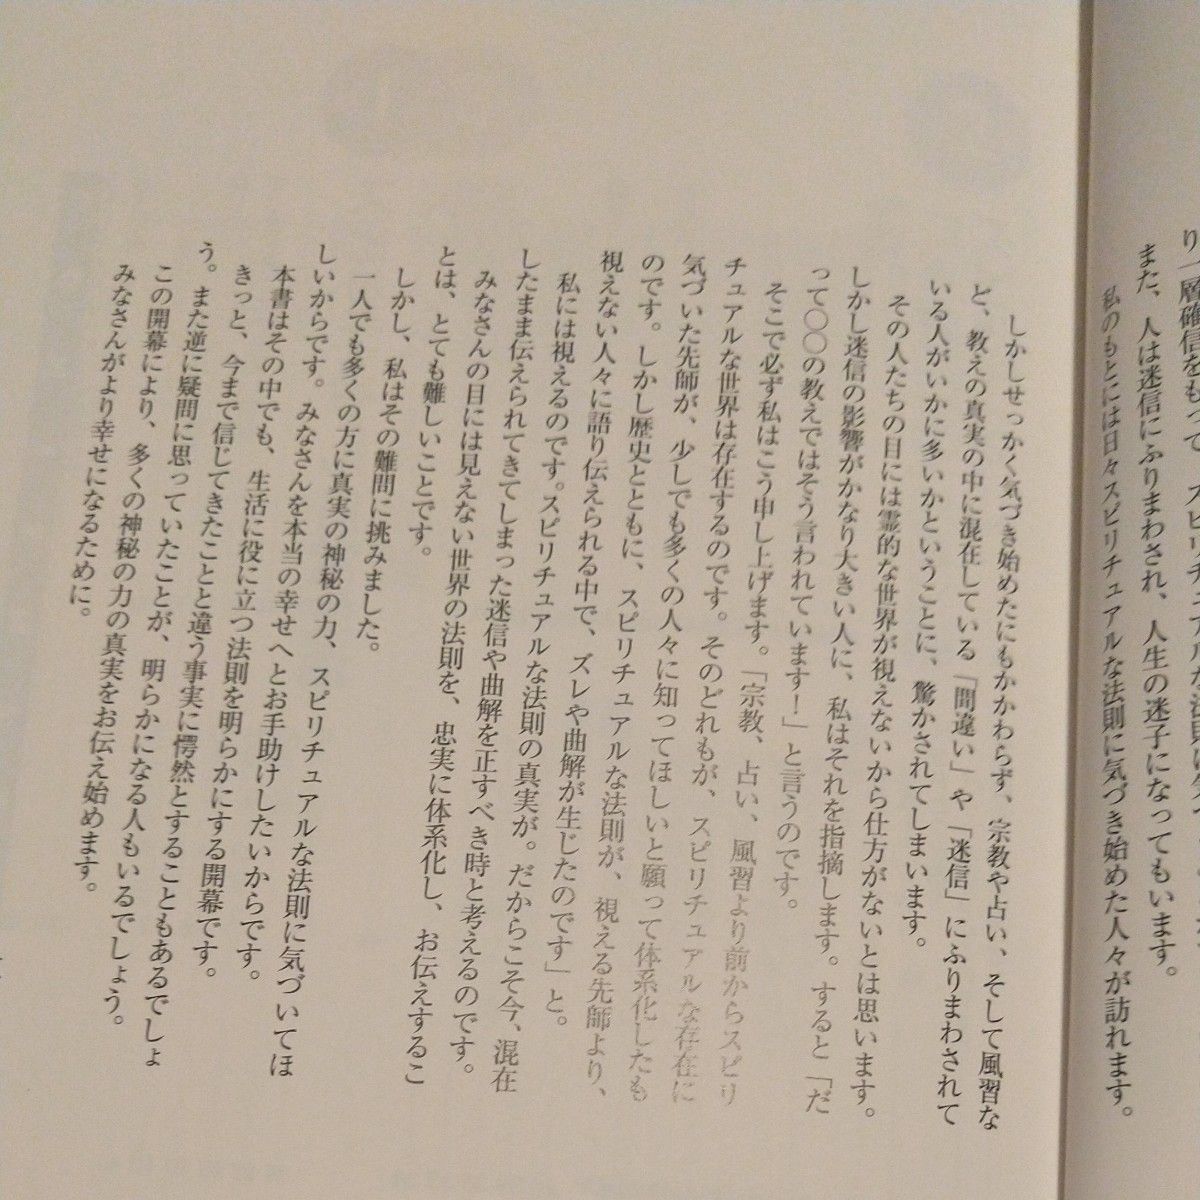 り一層確信をもって、スピリチュアルな法則
また、人は迷信にふりまわされ、人生の迷子になってもいます。
私のもとには日々スピリチュアルな法則に気づき始めた人々が訪れます。
しかしせっかく気づき始めたにもかかわらず、宗教や占い、そして風習な
ど、教えの真実の中に混在している「間違い」や「迷信」にふりまわされて
いる人がいかに多いかということに、驚かされてしまいます。
その人たちの目には霊的な世界が視えないから仕方がないとは思います。
しかし迷信の影響がかなり大きい人に、私はそれを指摘します。すると「だ
って〇〇の教えではそう言われています！」と言うのです。
そこで必ず私はこう申し上げます。「宗教、占い、風習より前からスピリ
チュアルな世界は存在するのです。そのどれもが、スピリチュアルな存在に
気づいた先師が、少しでも多くの人々に知ってほしいと願って体系化したも
のです。しかし歴史とともに、スピリチュアルな法則が、視える先師より、
視えない人々に語り伝えられる中で、ズレや曲解が生じたのです」と。
私には視えるのです。スピリチュアルな法則の真実が。だからこそ今、混在
したまま伝えられてきてしまった迷信や曲解を正すべき時と考えるのです。
みなさんの目には見えない世界の法則を、忠実に体系化し、お伝えするこ
とは、とても難しいことです。
しかし、私はその難問に挑みました。
一人でも多くの方に真実の神秘の力、スピリチュアルな法則に気づいてほ
しいからです。みなさんを本当の幸せへとお手助けしたいからです。
本書はその中でも、生活に役に立つ法則を明らかにする開幕です。
きっと、今まで信じてきたことと違う事実に愕然とすることもあるでしょ
う。また逆に疑問に思っていたことが、明らかになる人もいるでしょう。
この開幕により、多くの神秘の力の真実をお伝え始めます。
みなさんがより幸せになるために。